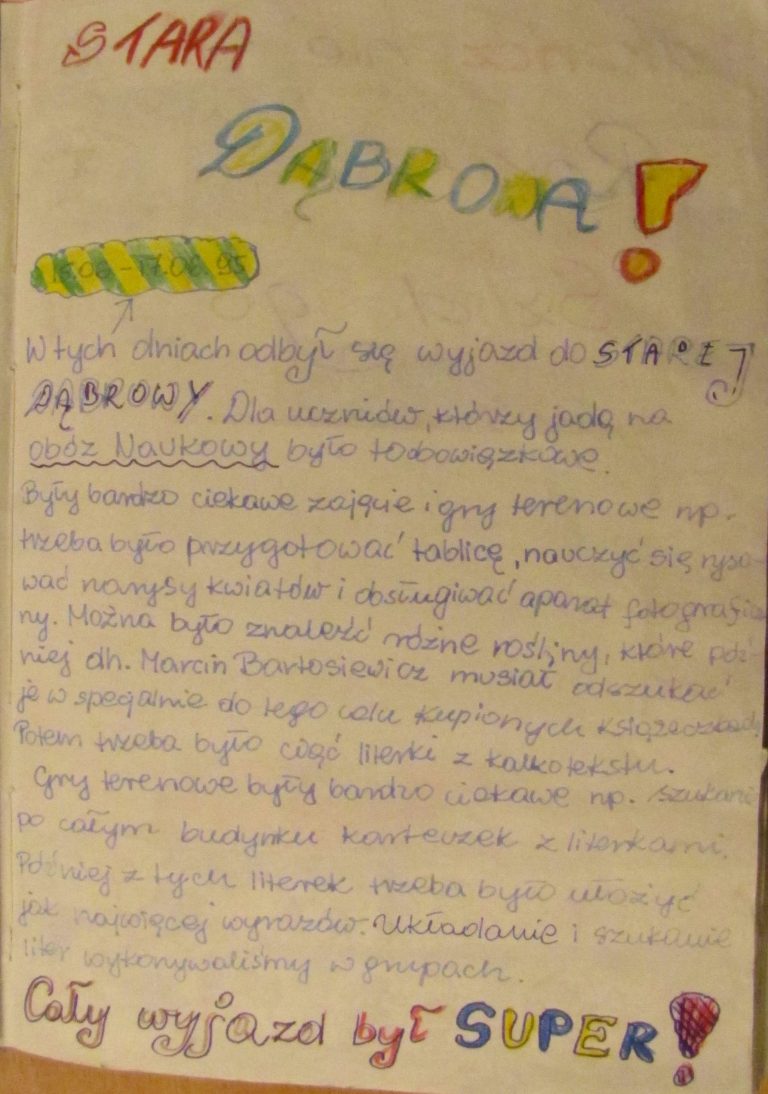 STARA
DĄBROWA!
15.06 - 17.06.95
W tych dniach odbył się wyjazd do STAREJ
DĄBROWY. Dla uczniów, którzy jadą na
obóz Naukowy było to obowiązkowe.
Były bardzo ciekawe zajęcie i gry terenowe np.
trzeba było przygotować tablicę, nauczyć się ryso-
wać narysy kwiatów i obsługiwać aparat fotograficz
ny. Można było znaleźć różne rośliny, które póź-
niej dh. Marcin Bartosiewicz musiał odszukać
je w specjalnie do tego celu kupionych książeczkach.
Potem trzeba było ciąć literki z kalkotekstu.
Gry terenowe były bardzo ciekawe np. szukanie
po całym budynku karteczek z literkami.
Później z tych literek trzeba było ułożyć
jak najwięcej wyrazów. Układanie i szukanie
liter wykonywaliśmy w grupach.
Cały wyjazd był SUPER!